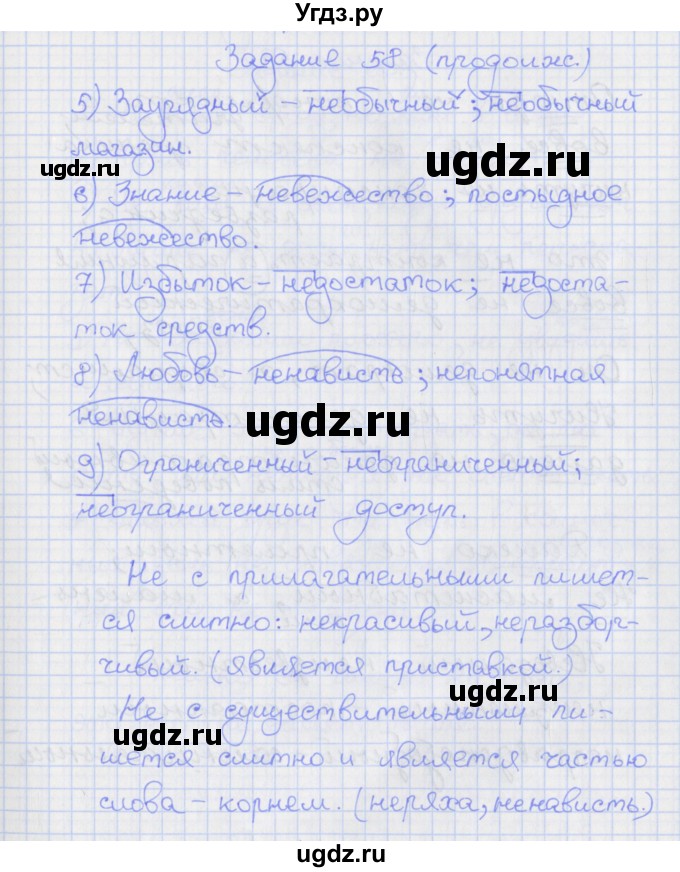 Угдз.ру
Задание 58 (продолж.)
5) Заурядный - необычный; необычный
магазин.
ugdz.ru
ugdz.ru
6) Знание - невежество; постыдное
невежество.
7) Избыток - недостаток; недоста-
ток средств.
ugdz.ru
8) Любовь - ненависть; непонятная
ненависть.
ugdz.ru
9) Ограниченный - неограниченный;
неограниченный доступ.
ugdz.ru
Не с прилагательными пишет-
ся слитно: некрасивый, неразбор-
чивый. (является приставкой.)
ugdz.ru
Не с существительными пи-
ugdz.ru
шется слитно и является частью
слова - корнем. (неряха, ненависть.)
ugdz.ru